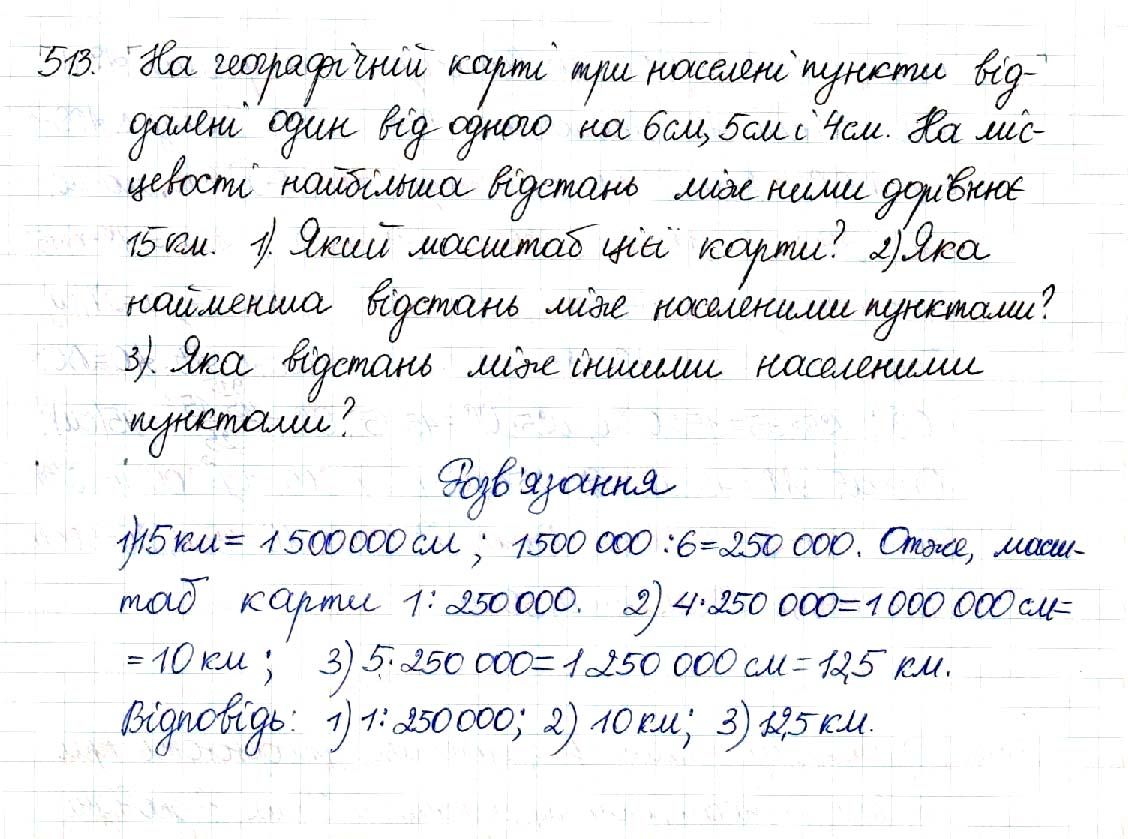 513. На географічній карті три населені пункти від-
далені один від одного на 6см, 5см і 4см. На міс-
цевості найбільша відстань між ними дорівнює
15км. 1). Який масштаб цієї карти? 2) Яка
найменша відстань між населеними пунктами?
3). Яка відстань між іншими населеними
пунктами?
Розв'язання
1) 15 км = 1 500 000 см ; 1 500 000 : 6 = 250 000. Отже, масш-
таб карти 1 : 250 000. 2) 4 · 250 000 = 1 000 000 см =
= 10 км ; 3) 5 · 250 000 = 1 250 000 см = 12,5 км.
Відповідь: 1) 1 : 250 000; 2) 10 км; 3) 12,5 км.